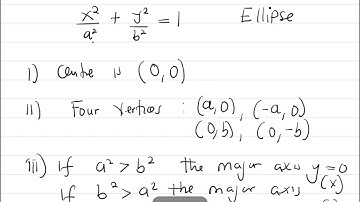 x²/a² + y²/b² = 1 Ellipse
i) Centre is (0,0)
ii) Four vertices : (a,0), (-a,0)
(0,b), (0,-b)
iii) if a² > b² the major axis y=0
if b² > a² the major axis (x)